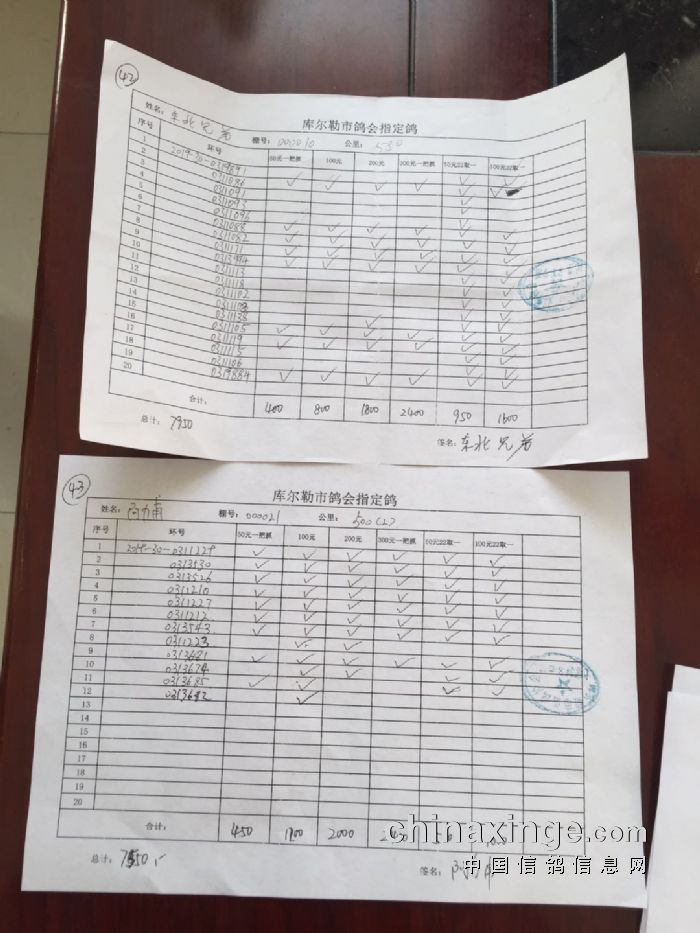 43
库尔勒市鸽会指定鸽
姓名: 东北兄弟 棚号: 000010 公里: 530
序号 环号 50元一把抓 100元 200元 300元一把抓 50元22取一 100元22取一
1
2 0311086
3 0311091
4 0311093
5 0311096
6 0311088
7 0311082
8 0311171
9
10 0311113
11 0311118
12 0311102
13
14 0311138
15 0311105
16 0311119
17 0311115
18 0311106
19 0319884
20
合计: 400 800 1800 2400 950 1600
总计: 7950 签名: 东北兄弟
43
库尔勒市鸽会指定鸽
姓名: 阿力甫 棚号: 000021 公里: 500
序号 环号 50元一把抓 100元 200元 300元一把抓 50元22取一 100元22取一
1 2019-30-0311229
2 0313530
3 0313526
4 0311210
5 0311227
6 0311212
7 0313543
8 0311223
9 0313681
10 0313674
11 0313685
12 0313682
13
14
15
16
17
18
19
20
合计: 450 2000
总计: 签名:
chinaxinge.com
中国信鸽信息网